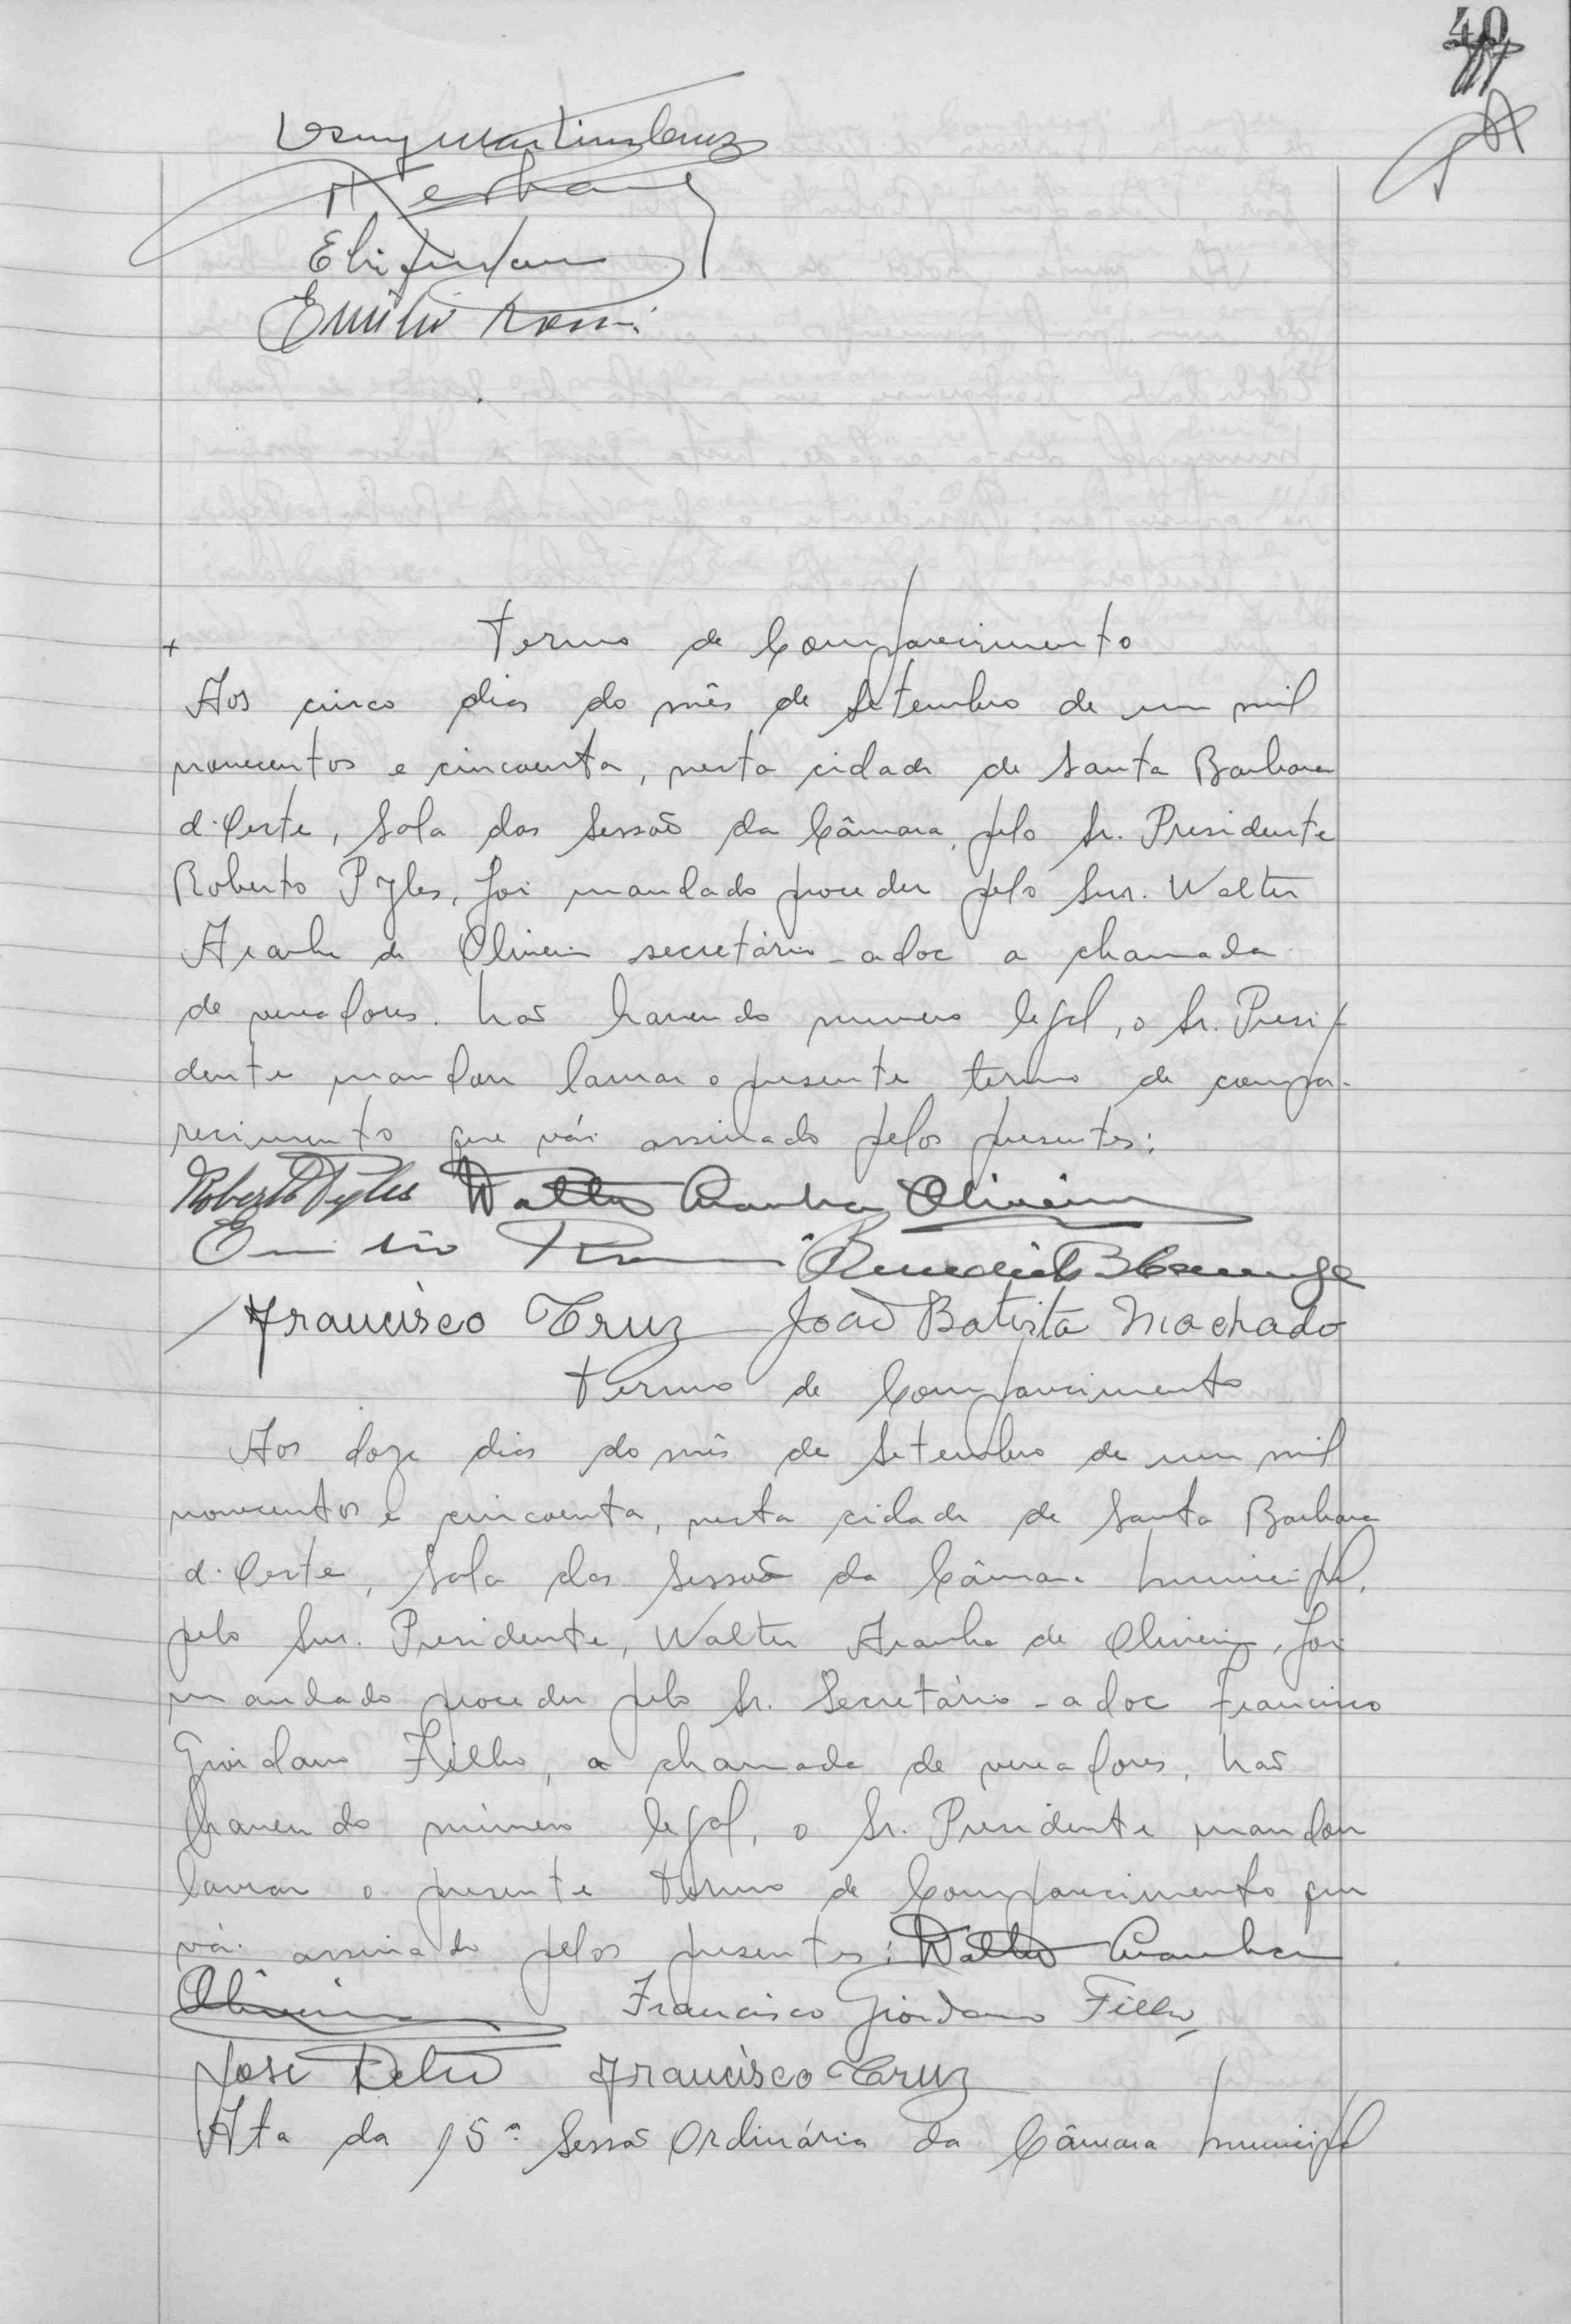 40
Martins Cruz
Emilio Romi
Termo de Comparecimento
Aos cinco dias do mês de Setembro de um mil
novecentos e cincoenta, nesta cidade de Santa Barbara
d'Oeste, Sala das Sessão da Câmara, pelo Sr. Presidente
Roberto Pyles, foi mandado proceder pelo Snr. Walter
Aranha de Oliveira secretário-adoc a chamada
de vereadores. Não havendo numero legal, o Sr. Presi-
dente mandou lavrar o presente termo de compa-
recimento que vái assinado pelos presentes:
Roberto Pyles Walter Aranha Oliveira
Emilio Romi Benedicto B
Francisco Cruz João Batista Machado
Termo de Comparecimento
Aos doze dias do mês de Setembro de um mil
novecentos e cincoenta, nesta cidade de Santa Barbara
d'Oeste, Sala das Sessão da Câmara Municipal,
pelo Snr. Presidente, Walter Aranha de Oliveira, foi
mandado proceder pelo Sr. Secretário-adoc Francisco
Giordano Filho, a chamada de vereadores, Não
havendo número legal, o Sr. Presidente mandou
lavrar o presente termo de Comparecimento que
vái assinado pelos presentes: Walter Aranha
Oliveira Francisco Giordano Filho
José Francisco Cruz
Ata da 15ª Sessão Ordinária da Câmara Municipal